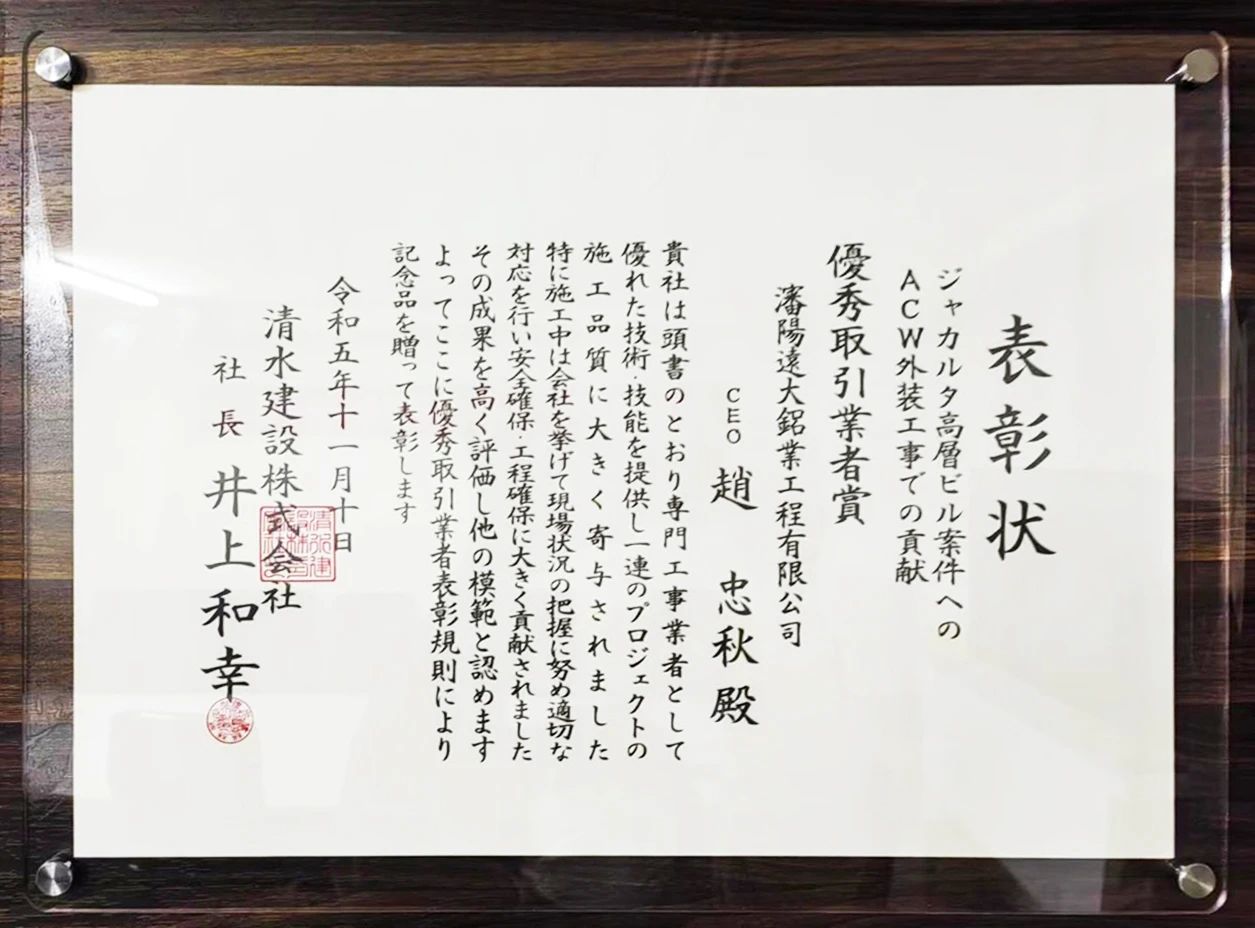 表彰状
ジャカルタ高層ビル案件への
ACW外装工事での貢献
優秀取引業者賞
瀋陽遠大鋁業工程有限公司
CEO 趙 忠秋 殿
貴社は頭書のとおり専門工事業者として
優れた技術・技能を提供し一連のプロジェクトの
施工品質に大きく寄与されました
特に施工中は会社を挙げて現場状況の把握に努め適切な
対応を行い安全確保・工程確保に大きく貢献されました
その成果を高く評価し他の模範と認めます
よってここに優秀取引業者表彰規則により
記念品を贈って表彰します
令和五年十一月十日
清水建設株式会社
社長 井上和幸